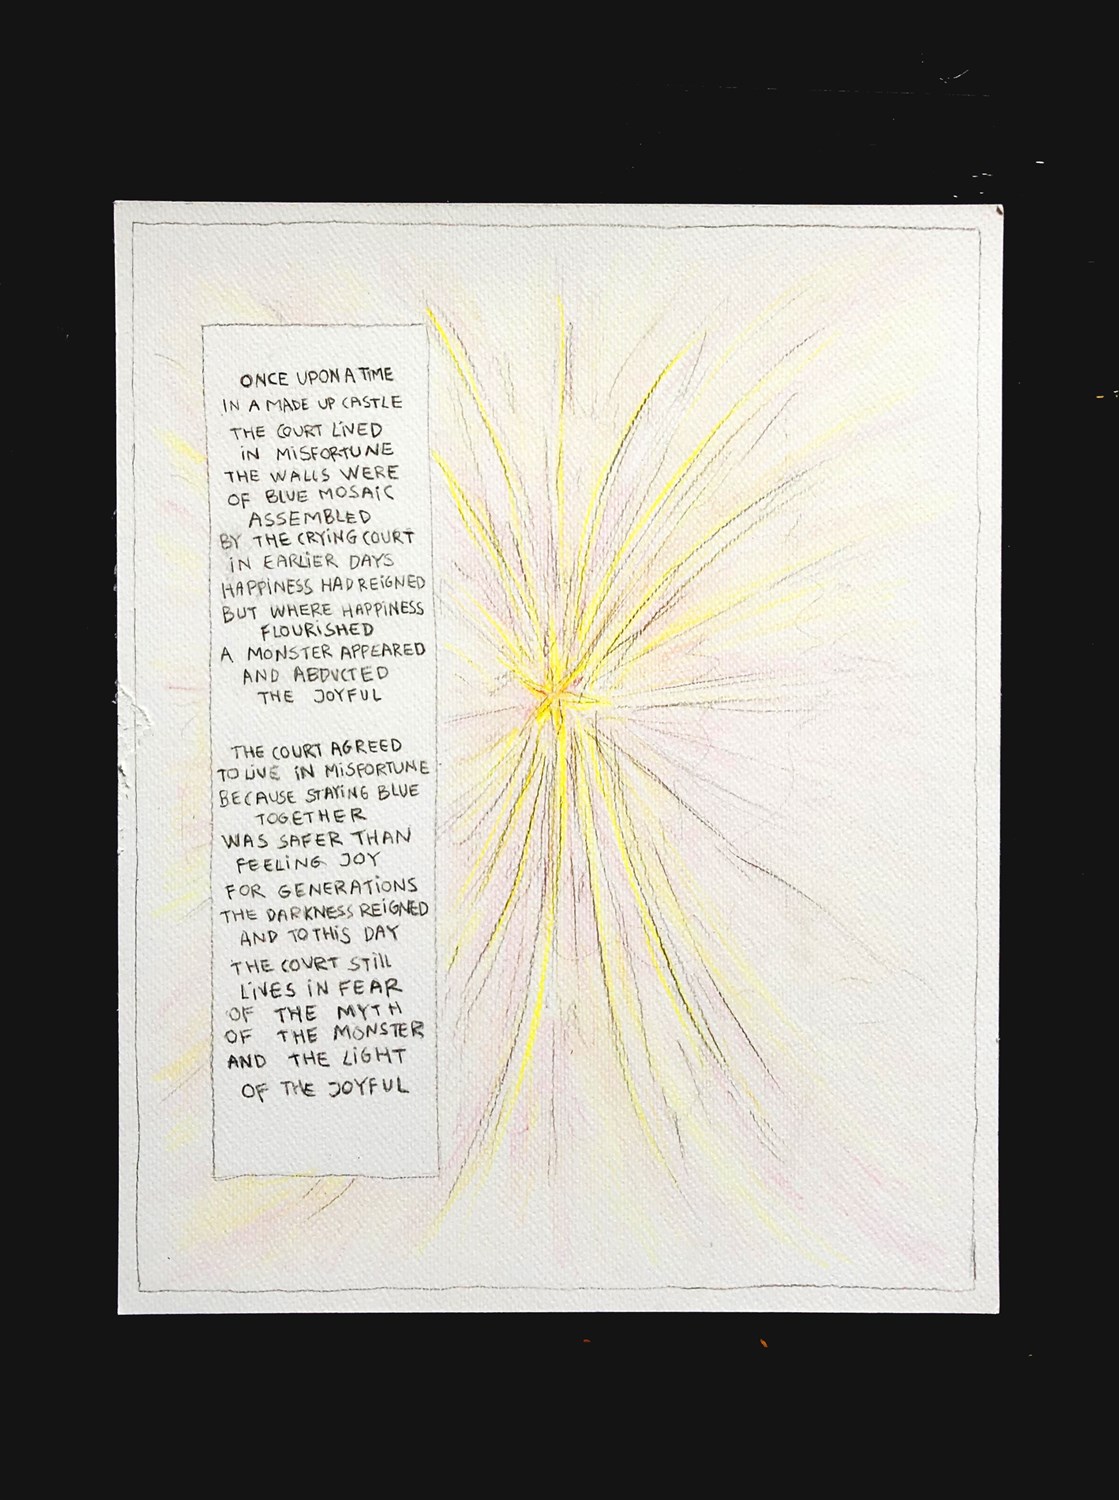 ONCE UPON A TIME
IN A MADE UP CASTLE
THE COURT LIVED
IN MISFORTUNE
THE WALLS WERE
OF BLUE MOSAIC
ASSEMBLED
BY THE CRYING COURT
IN EARLIER DAYS
HAPPINESS HAD REIGNED
BUT WHERE HAPPINESS
FLOURISHED
A MONSTER APPEARED
AND ABDUCTED
THE JOYFUL
THE COURT AGREED
TO LIVE IN MISFORTUNE
BECAUSE STAYING BLUE
TOGETHER
WAS SAFER THAN
FEELING JOY
FOR GENERATIONS
THE DARKNESS REIGNED
AND TO THIS DAY
THE COURT STILL
LIVES IN FEAR
OF THE MYTH
OF THE MONSTER
AND THE LIGHT
OF THE JOYFUL